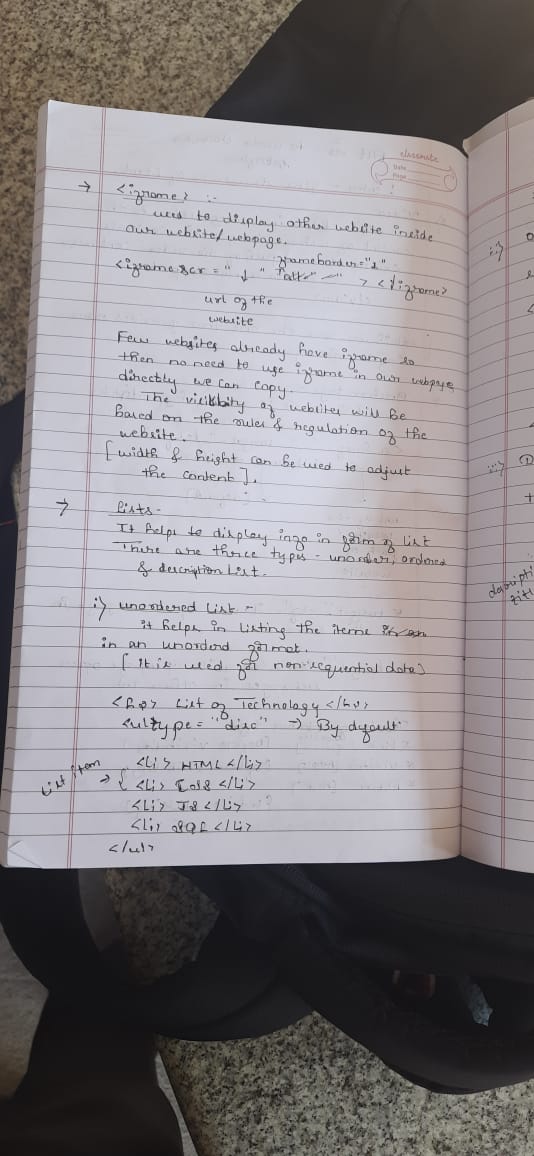 classmate
Date
Page
→ <iframe> :-
used to display other website inside
our website/webpage.
frameborder="1"
<iframe scr = " ↓ " > </iframe>
url of the
website
Few websites already have iframe so
then no need to use iframe in our webpge
directly we can copy.
The visibility of websites will be
based on the rules & regulation of the
website.
[ width & height can be used to adjust
the content ].
→ Lists -
It helps to display info in form of list
There are three types - unorder, ordered
& description List.
i) unordered List -
it helps in listing the items
in an unorderd format.
[ It is used for non-sequential data]
<h2> List of Technology </h2>
<ul type = "disc" → By default
<li> HTML </li>
List item → { <li> CSS </li>
<li> JS </li>
<li> SQL </li>
</ul>
ii)
iii) ①
+